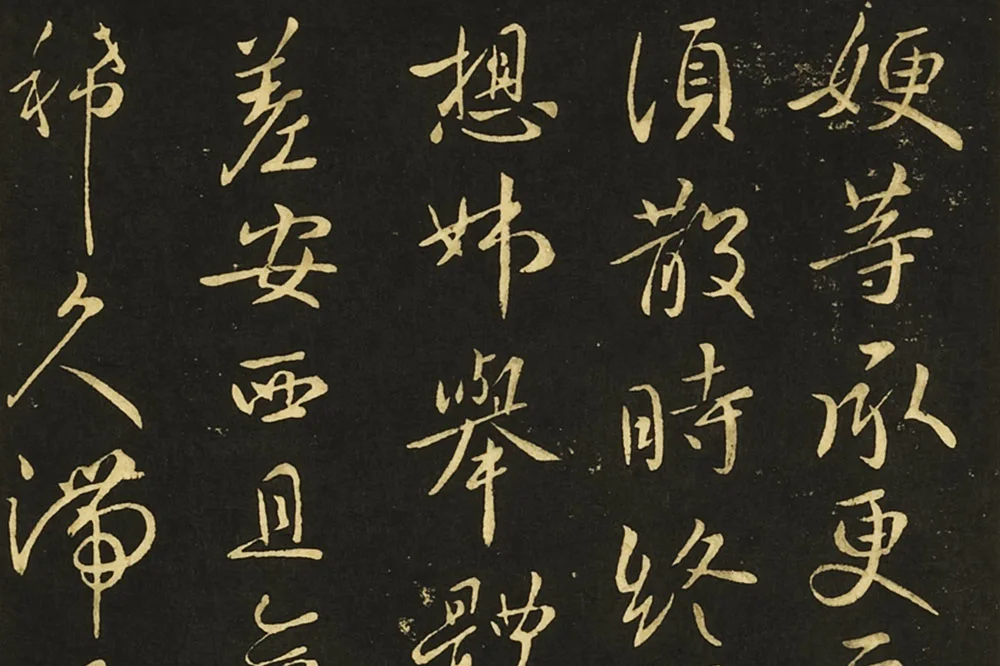 娌等承更
須散時終
想姊舉體
差安西且
稀久滯